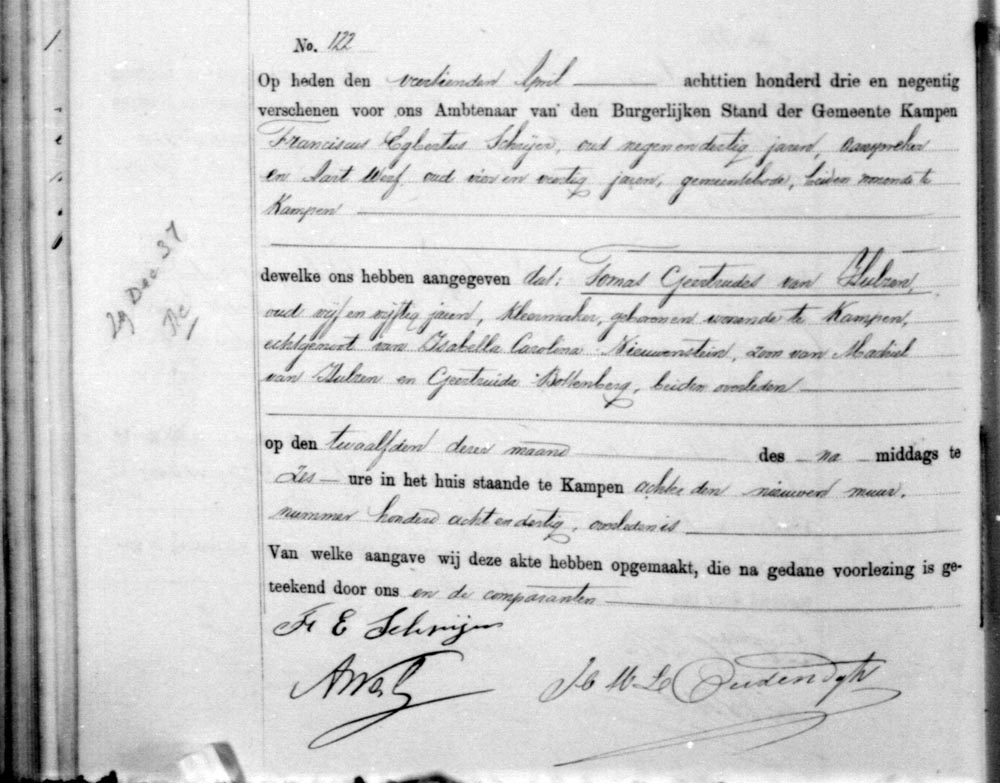 No. 122
Op heden den veertienden April achttien honderd drie en negentig
verschenen voor ons Ambtenaar van den Burgerlijken Stand der Gemeente Kampen
Franciscus Egbertus Schrijer, oud negenendertig jaren, aanspreker
en Aart Werf oud vier en veertig jaren, gemeentebode, beiden wonende te
Kampen
dewelke ons hebben aangegeven dat: Tomas Geertrudes van Hulzen,
oud vijf en vijftig jaren, kleermaker, geboren en wonende te Kampen,
echtgenoot van Isabella Carolina Nieuwenstein, zoon van Machiel
van Hulzen en Geertruida Bollenberg, beiden overleden
op den twaalfden dezer maand des na middags te
zes ure in het huis staande te Kampen achter den nieuwen muur,
nummer honderd acht en dertig, overleden is
Van welke aangave wij deze akte hebben opgemaakt, die na gedane voorlezing is ge-
teekend door ons en de comparanten
Fr E Schrijer
AWerf
Oudendyk
29 Dec. 37